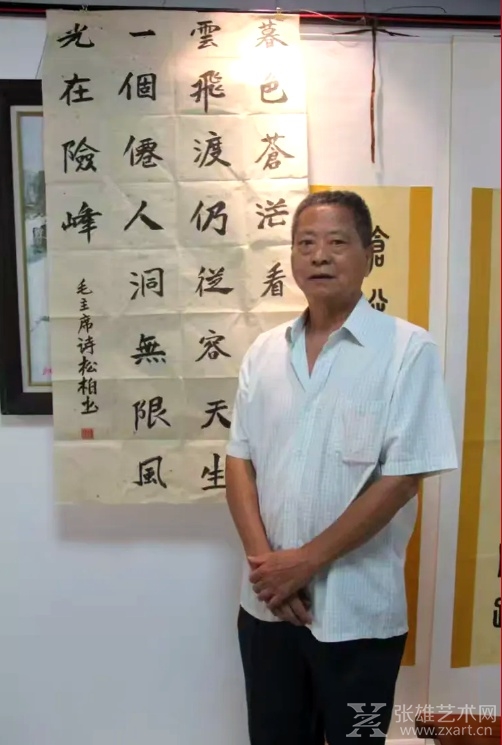 暮色蒼茫看
雲飛渡仍從容天生
一個僊人洞無限風
光在險峰
毛主席诗松柏书
张雄艺术网
www.zxart.cn